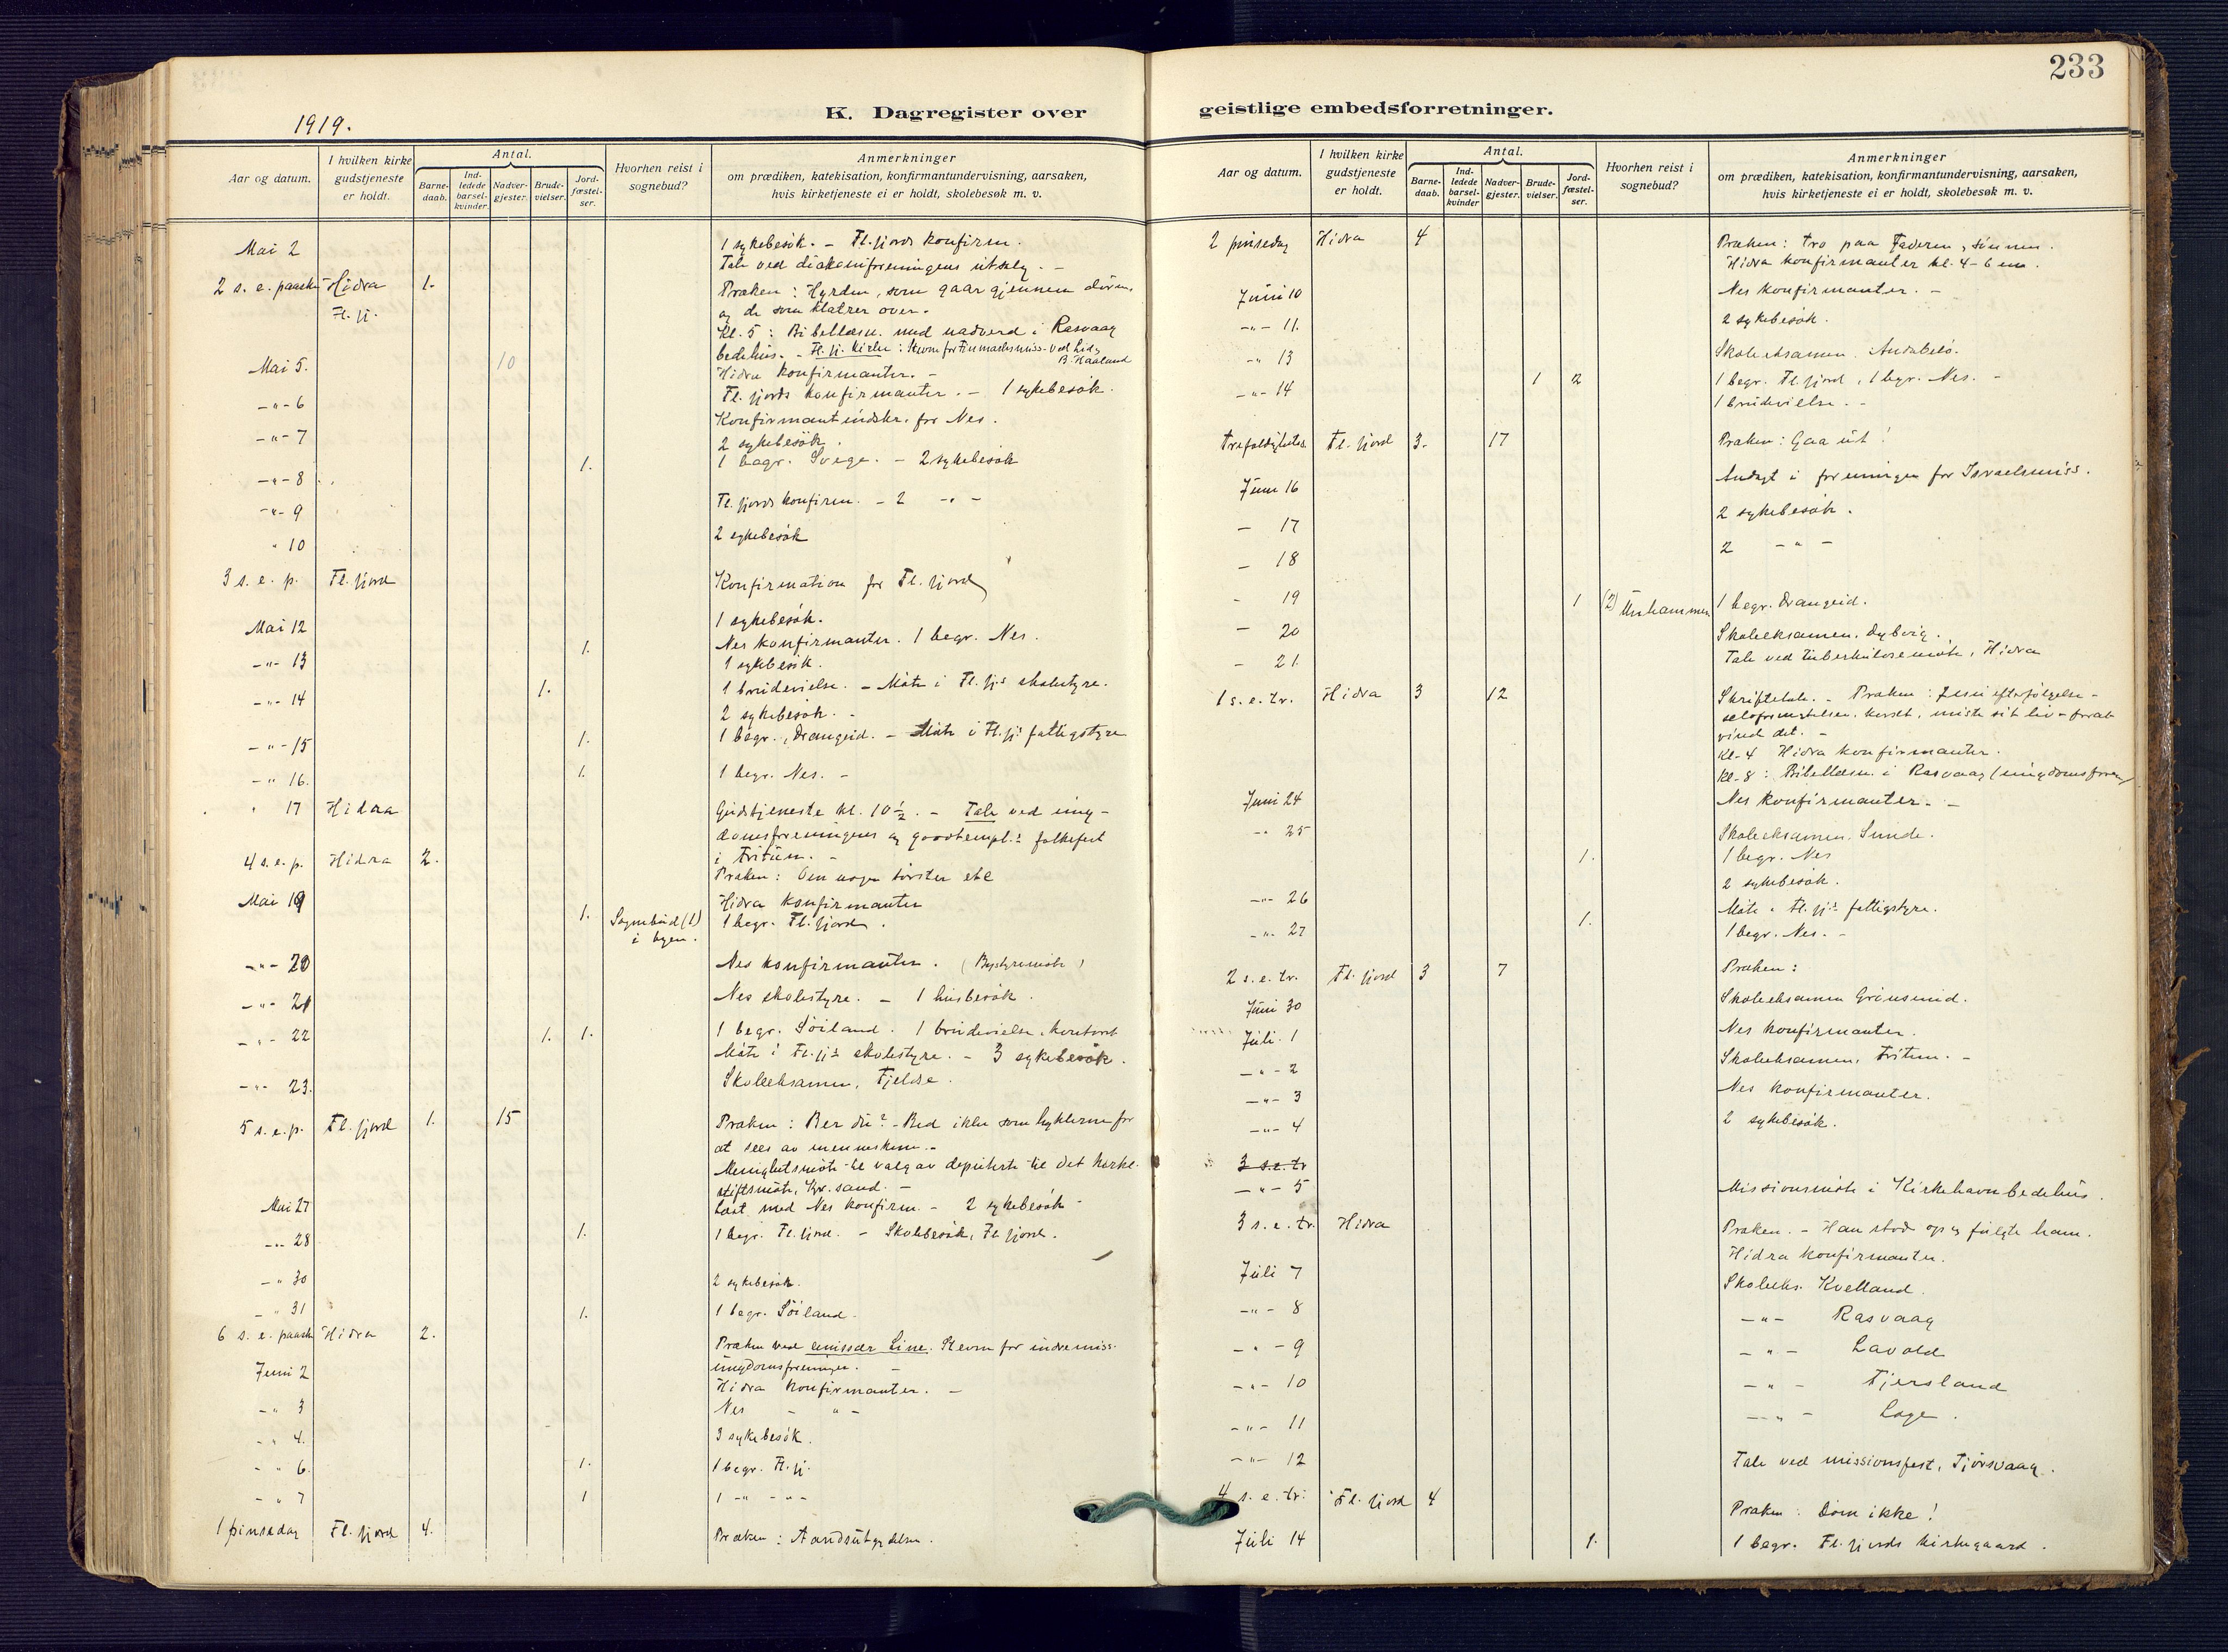 233
K. Dagregister over geistlige embedsforretninger.
1919.
Aar og datum.
I hvilken kirke gudstjeneste er holdt.
Antal.
Barne-daab.
Ind-ledede barsel-kvinder.
Nadver-gjester.
Brude-vielser.
Jord-fæstel-ser.
Hvorhen reist i sognebud?
Anmerkninger
om prædiken, katekisation, konfirmantundervisning, aarsaken,
hvis kirketjeneste ei er holdt, skolebesøk m. v.
Mai 2 1 sykebesök. - Fl.fjords konfirm.
Tale ved diakoniforeningens utsalg. -
2 s. e. paaske Hidra 1. Præken: Hyrden, som gaar gjennem dören,
Fl. fj. og de som klatrer over.
Kl. 5: Bibellæsn. med nadverd i Rasvaag
bedehus. - Fl. fj. kirke: Stevne for Finmarksmiss. ved
B. Haaland
Mai 5. 10 Hidra konfirmanter. -
-"- 6 Fl. fjords konfirmanter. - 1 sykebesök.
-"- 7 Konfirmantindskr. for Nes.
2 sykebesök.
-"- 8 1. 1 begr. Svege. - 2 sykebesök
-"- 9 Fl. fjords konfirm. - 2 -"-
" 10 2 sykebesök
3 s. e. p. Fl. fjord Konfirmation for Fl. fjord
Mai 12 1 sykebesök.
-"- 13 1. Nes konfirmanter. 1 begr. Nes.
1 sykebesök.
-"- 14 1. 1 brudevielse. - Möte i Fl. fj.s skolestyre.
2 sykebesök. -
-"- 15 1. 1 begr., Drangeid. - Möte i Fl. fj.s fattigstyre
-" 16. 1. 1 begr. Nes. -
" 17 Hidra Gudstjeneste kl. 10 ½. - Tale ved ung-
domsforeningens og goodtempl.s folkefest
i Fritum. -
4 s. e. p. Hidra 2. Præken: Om nogen törster etc
Mai 19 Hidra konfirmanter
1. Sognebud (1) i byen. 1 begr. Fl. fjord.
-"- 20 Nes konfirmanter. (Bystyremöte)
-"- 21 Nes skolestyre. - 1 husbesök.
-"- 22 1. 1. 1 begr. Söiland. 1 brudevielse, kontoret
Möte i Fl. fj.s skolestyre. - 3 sykebesök.
-"- 23. Skoleeksamen, Fjeldse.
5 s. e. p. Fl. fjord 1. 15 Præken: Ber du? - Bed ikke som hyklerne for
at sees av menneskene. -
Menighetsmöte til valg av deputerte til det
stiftsmöte, Kr.sand. -
Mai 27 Læst med Nes konfirm. - 2 sykebesök -
-"- 28 1. 1 begr. Fl. fjord. - Skolebesök, Fl. fjord.
-" 30 2 sykebesök.
-" 31 1. 1 begr. Söiland.
6 s. e. paaske Hidra 2. Præken ved emissær Line. Stevne for indremiss.
ungdomsforeninger. -
Juni 2 Hidra konfirmanter. -
-" 3 Nes - " -
-" 4. 3 sykebesök.
-" 6. 1. 1 begr. Fl. fj.
-" 7 1 1 -"- -"-
1 pinsedag Fl. fjord 4. Præken: Aandsutgydelsen.
Aar og datum.
I hvilken kirke gudstjeneste er holdt.
Antal.
Barne-daab.
Ind-ledede barsel-kvinder
Nadver-gjester.
Brude-vielser.
Jord-fæstel-ser.
Hvorhen reist i sognebud?
Anmerkninger
om prædiken, katekisation, konfirmantundervisning, aarsaken,
hvis kirketjeneste ei er holdt, skolebesøk m. v.
2 pinsedag Hidra 4 Præken: tro paa Faderen, sönnen.
Hidra konfirmanter kl. 4-6 em.
Juni 10 Nes konfirmanter. -
-"- 11. 2 sykebesök.
-" 13 Skoleeksamen. Andabelö.
-"- 14 1 2 1 begr. Fl. fjord, 1 begr. Nes. -
1 brudevielse. -
Trefoldighetss. Fl. fjord 3. 17 Præken: Gaa ut!
Juni 16 Andagt i foreningen for Israelsmiss.
- 17 2 sykebesök.
- 18 2 -"-
- 19 1 (2) Urshammer 1 begr. Drangeid.
- 20 Skoleeksamen. Dybvig.
- 21. Tale ved tuberkulosemöte, Hidra
1 s. e. tr. Hidra 3 12 Skriftetale. - Præken: Jesu efterfölgelse -
selvfornegtelsen. korset, miste sit liv - for at
vinde det. -
Kl. 4 Hidra konfirmanter.
Kl. 8: Bibellæsn. i Rasvaag (ungdomsforen)
Juni 24 Nes konfirmanter. -
-" 25 Skoleeksamen. Sunde.
1. 1 begr. Nes
2 sykebesök.
-"- 26 Möte i Fl. fj.s fattigstyre.
-"- 27 1. 1 begr. Nes. -
2 s. e. tr. Fl. fjord 3 7 Præken:
Juni 30 Skoleeksamen Grönsund.
Juli 1 Nes konfirmanter.
-"- 2 Skoleeksamen, Fritum. -
-"- 3 Nes konfirmanter.
-"- 4 2 sykebesök.
3 s. e. tr
-"- 5 Missionsmöte i Kirkehavn bedehus.
3 s. e. tr. Hidra Præken. - Han stod op og fulgte ham.
Hidra konfirmanter.
Juli 7 Skoleeks. Kvelland.
-"- 8 -"- Rasvaag
-"- 9 -"- Lavold
-"- 10 -"- Fjersland
-"- 11 -"- Loge.
-"- 12 Tale ved missionsfest, Tjörsvaag.
4 s. e. tr. Fl. fjord 4 Præken: Döm ikke!
Juli 14 1. 1 begr. Fl. fjords kirkegaard.